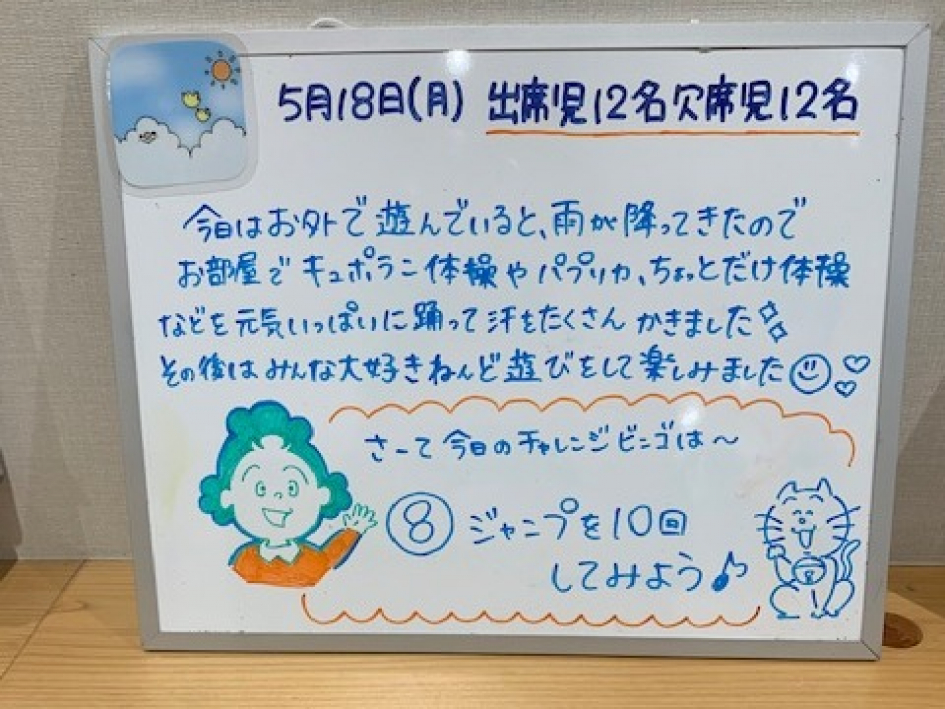 5月18日(月) 出席児12名欠席児12名
今日はお外で遊んでいると、雨が降ってきたので
お部屋でキュポラン体操やパプリカ、ちょっとだけ体操
などを元気いっぱいに踊って汗をたくさんかきました
その後はみんな大好きねんど遊びをして楽しみました
さーて今日のチャレンジビンゴは〜
⑧ ジャンプを10回
してみよう♪